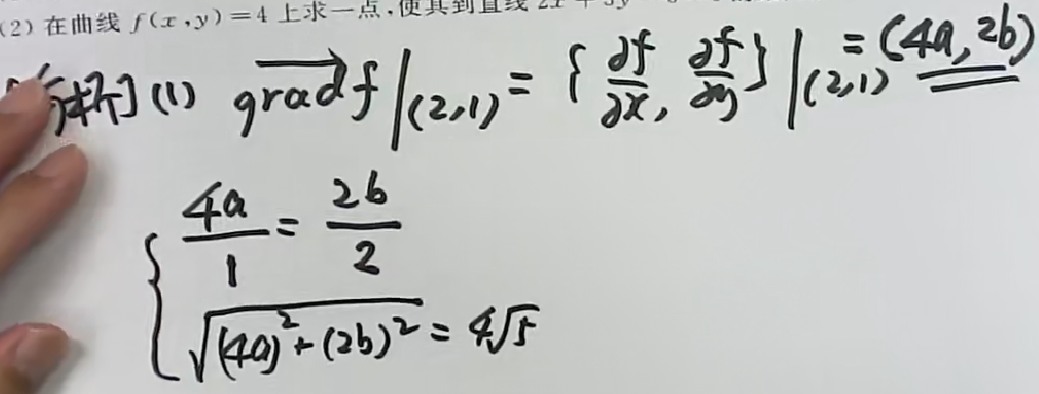 (2) 在曲线 f(x,y)=4 上求一点,使其到直线 2x
解析] (1) grad f |(2,1) = { ∂f/∂x, ∂f/∂y } |(2,1) = (4a, 2b)
4a/1 = 2b/2
√((4a)² + (2b)²) = 4√5